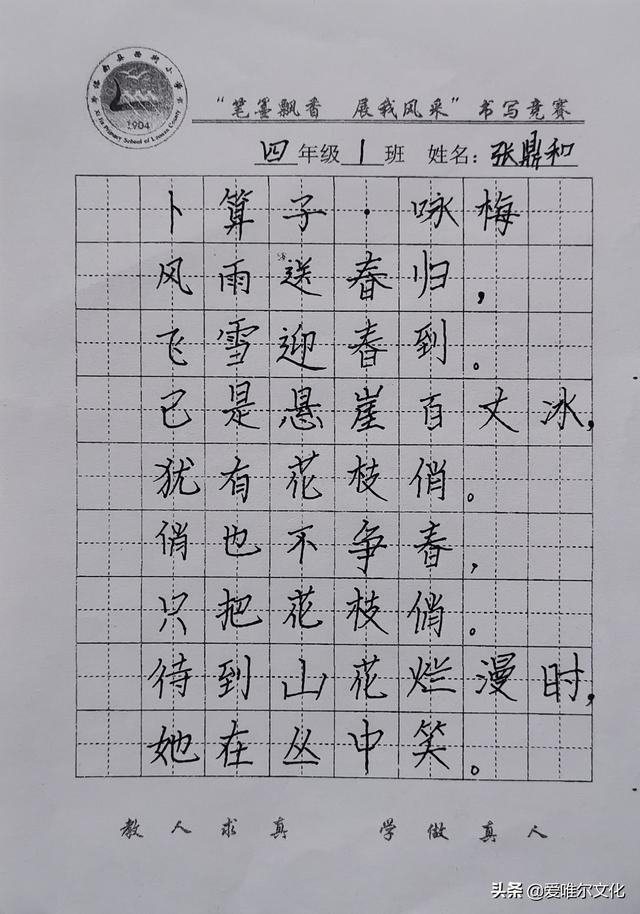 1904
Xi Jie Primary School of Luonan County
“笔墨飘香 展我风采”书写竞赛
四年级1班 姓名：张鼎和
卜算子·咏梅
风雨送春归，
飞雪迎春到。
已是悬崖百丈冰，
犹有花枝俏。
俏也不争春，
只把花枝俏。
待到山花烂漫时，
她在丛中笑。
教人求真 学做真人
头条 @爱唯尔文化